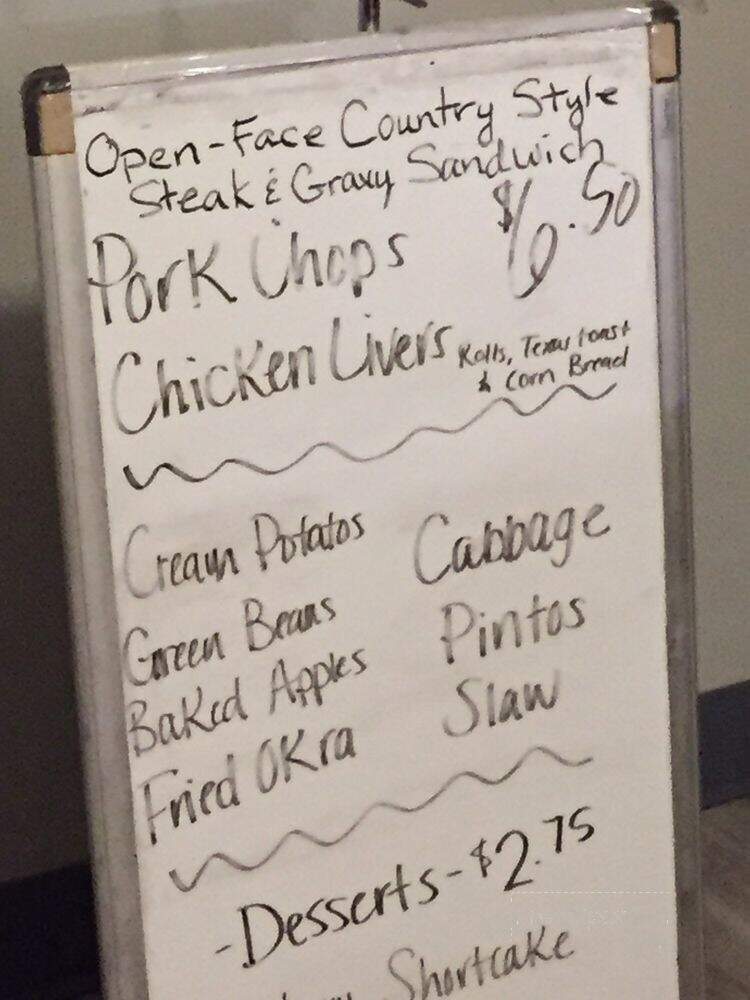 Open-Face Country Style
Steak & Gravy Sandwich
$6.50
Pork Chops
Chicken Livers
Rolls, Texas toast
& Corn Bread
Cream Potatos
Cabbage
Green Beans
Pintos
Baked Apples
Slaw
Fried Okra
-Desserts-$2.75
Shortcake